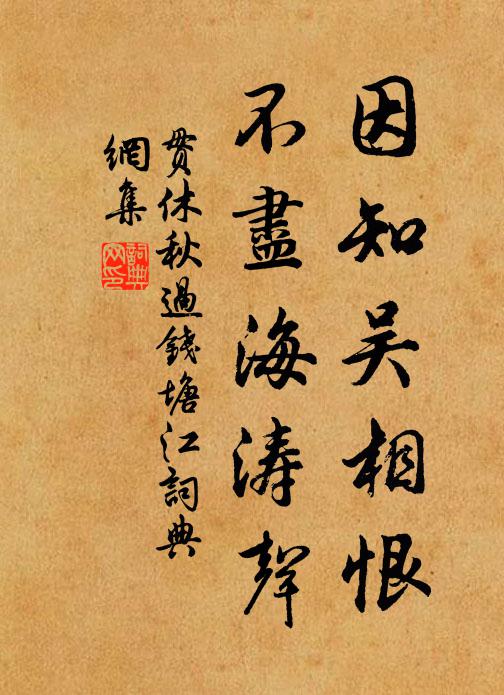 因知吴相恨
不盡海涛聲
贯休秋過錢塘江詞典
網集
詞典
网印